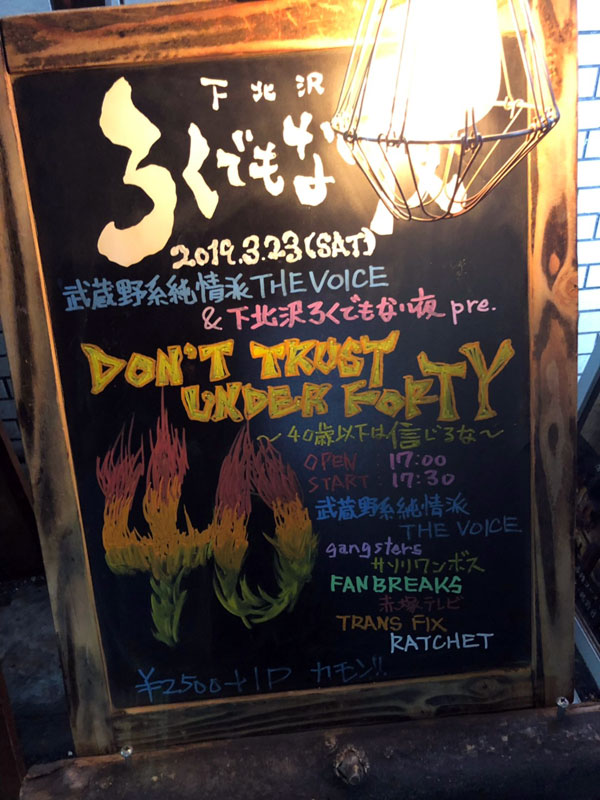 下北沢
ろくでもない夜
2019.3.23(SAT)
武蔵野系純情派THE VOICE
&下北沢ろくでもない夜 pre.
DON'T TRUST
UNDER FORTY
～40歳以下は信じるな～
40
OPEN : 17:00
START : 17:30
武蔵野系純情派
THE VOICE
gangsters
サソリワンボス
FAN BREAKS
赤塚テレビ
TRANS FIX
RATCHET
¥2500+1D カモン!!